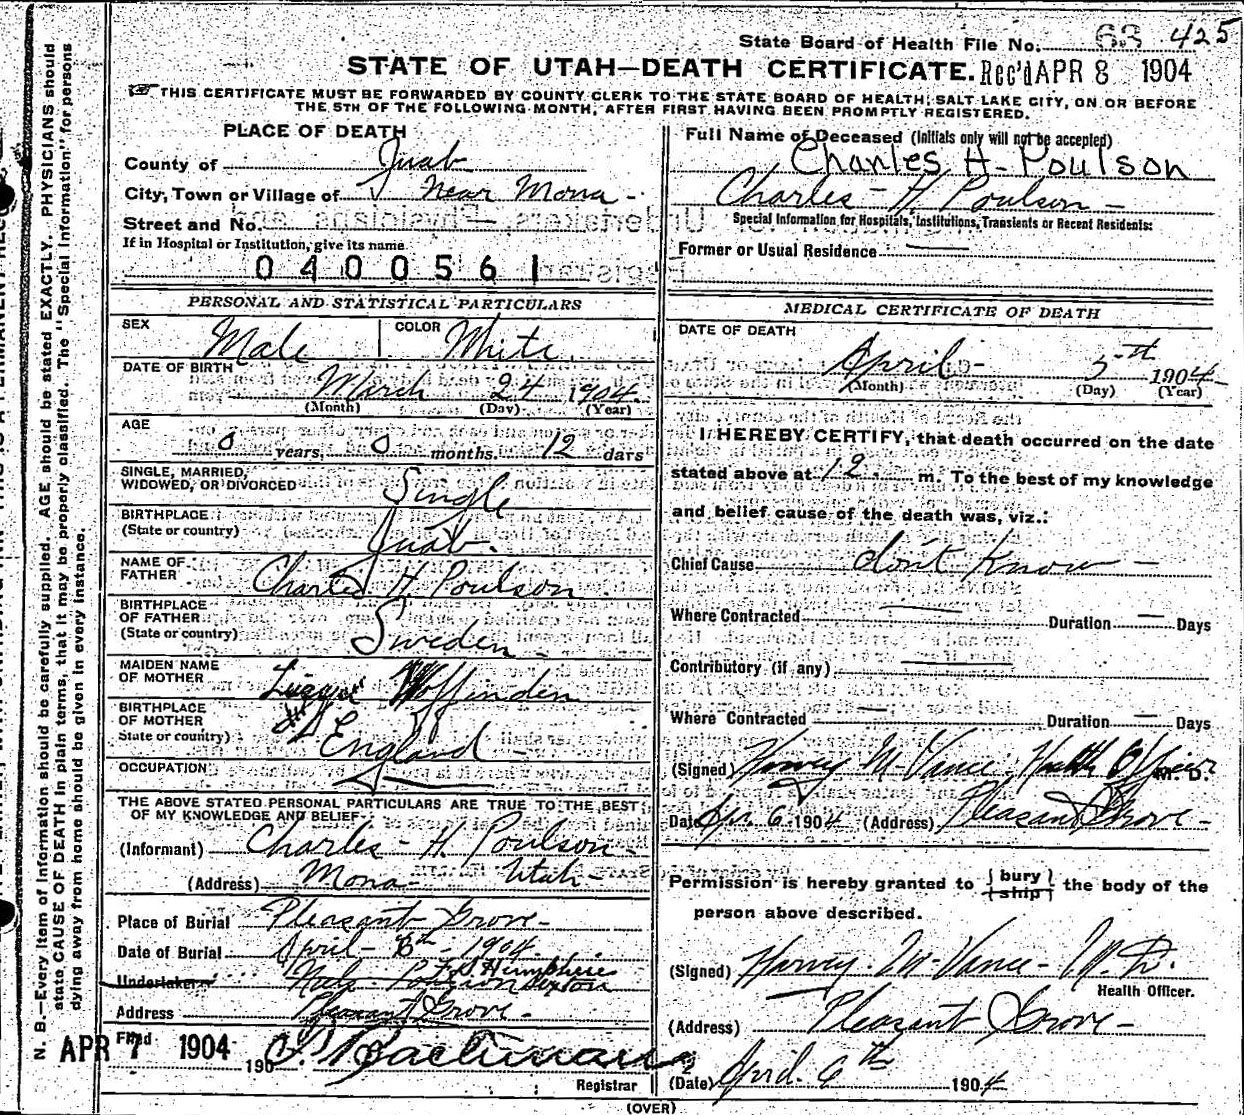 State Board of Health File No. 63 425
STATE OF UTAH—DEATH CERTIFICATE. Rec'd APR 8 1904
THIS CERTIFICATE MUST BE FORWARDED BY COUNTY CLERK TO THE STATE BOARD OF HEALTH, SALT LAKE CITY, ON OR BEFORE
THE 5TH OF THE FOLLOWING MONTH, AFTER FIRST HAVING BEEN PROMPTLY REGISTERED.
PLACE OF DEATH
County of Juab
City, Town or Village of Near Mona -
Street and No.
If in Hospital or Institution, give its name
0400561
PERSONAL AND STATISTICAL PARTICULARS
SEX Male COLOR White
DATE OF BIRTH March 24 1904
(Month) (Day) (Year)
AGE 0 years, 0 months, 12 days
SINGLE, MARRIED,
WIDOWED, OR DIVORCED Single
BIRTHPLACE
(State or country) Juab.
NAME OF
FATHER Charles H. Poulson.
BIRTHPLACE
OF FATHER
(State or country) Sweden -
MAIDEN NAME
OF MOTHER Woffinden
BIRTHPLACE
OF MOTHER
State or country) England -
OCCUPATION
THE ABOVE STATED PERSONAL PARTICULARS ARE TRUE TO THE BEST
OF MY KNOWLEDGE AND BELIEF
(Informant) Charles - H. Poulson -
(Address) Mona - Utah -
Place of Burial Pleasant Grove -
Date of Burial April - 6th - 1904.
Undertaker Sexton
Address Pleasant Grove -
Filed APR 7 1904 190
Registrar
Full Name of Deceased (Initials only will not be accepted)
Charles H. Poulson
Charles - H. Poulson -
Special Information for Hospitals, Institutions, Transients or Recent Residents:
Former or Usual Residence
MEDICAL CERTIFICATE OF DEATH
DATE OF DEATH
April - 5th 1904
(Month) (Day) (Year)
I HEREBY CERTIFY, that death occurred on the date
stated above at 12 m. To the best of my knowledge
and belief cause of the death was, viz.:
Chief Cause don't Know -
Where Contracted Duration — Days
Contributory (if any)
Where Contracted — Duration — Days
(Signed) Harvey M. Vance, Health Officer M. D.
Date Apr. 6 1904 (Address) Pleasant Grove -
Permission is hereby granted to { bury / ship } the body of the
person above described.
(Signed) Harvey - M - Vance - M. D.
Health Officer.
(Address) Pleasant Grove -
(Date) April. 6th 1904
(OVER)
N. B.—Every item of information should be carefully supplied. AGE should be stated EXACTLY. PHYSICIANS should
state CAUSE OF DEATH in plain terms, that it may be properly classified. The "Special Information" for persons
dying away from home should be given in every instance.